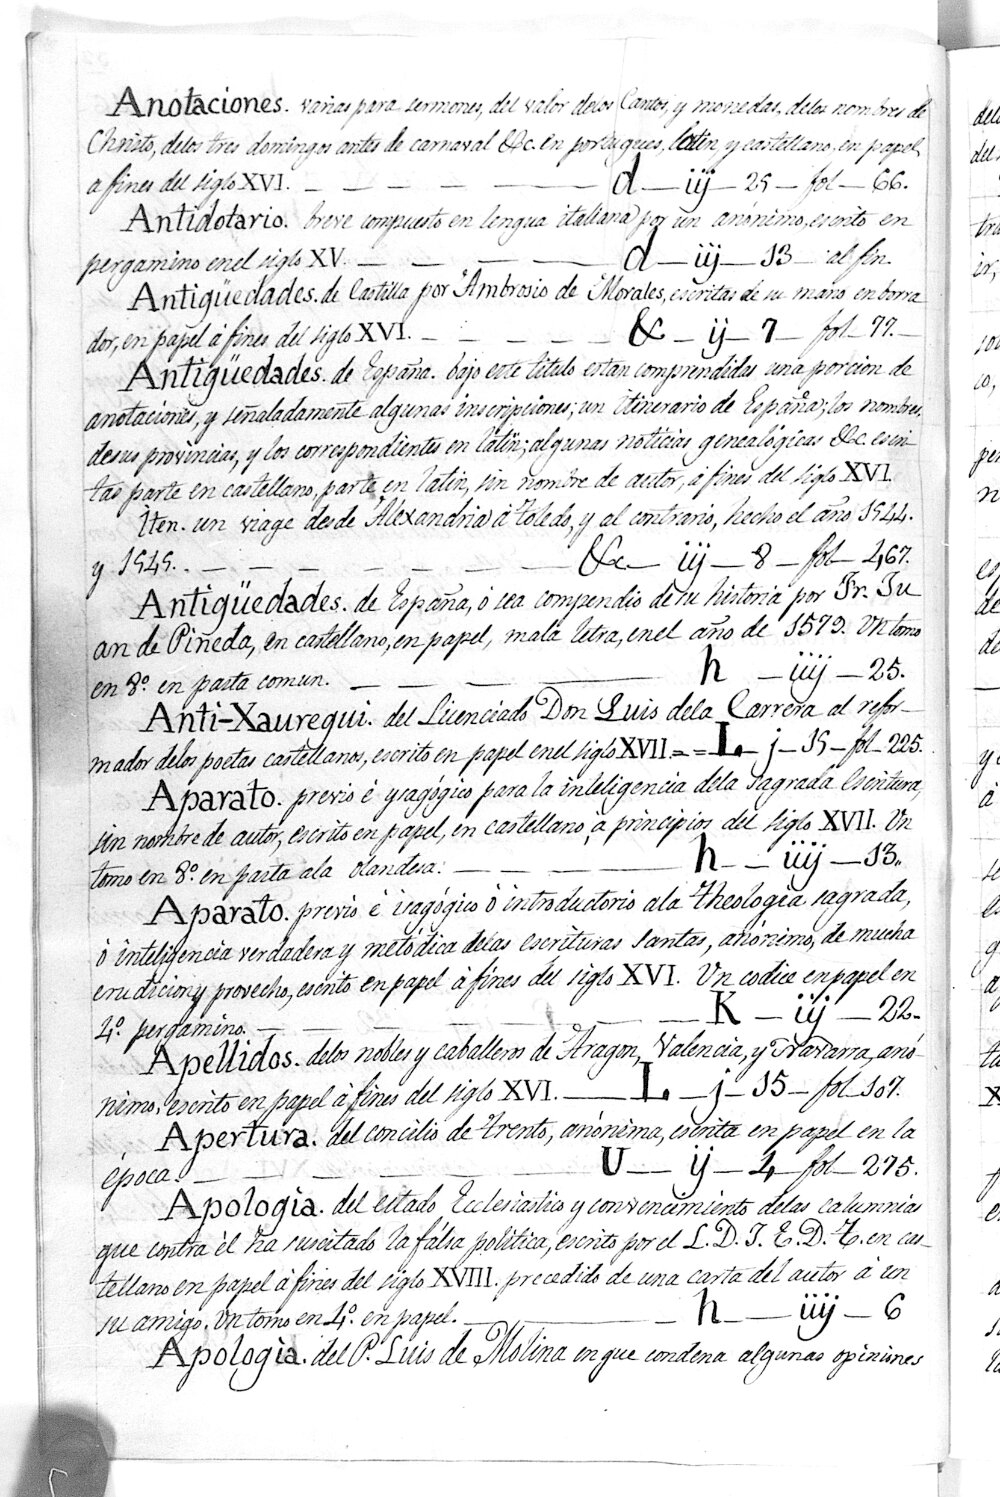 Anotaciones. varias para sermones, del valor delos Cantos, y monedas, delos nombres de
Christo, delos tres domingos antes de carnaval &c. en portugues, latin, y castellano, en papel,
a fines del siglo XVI. — — — — — — d — iij — 25 — fol — 66.
Antidotario. breve compuesto en lengua italiana por un anónimo, escrito en
pergamino enel siglo XV. — — — — — d — iij — 13 — al fin.
Antigüedades. de Castilla por Ambrosio de Morales, escritas de su mano en borra
dor, en papel á fines del siglo XVI. — — — — — & — ij — 7 fol — 77. —
Antigüedades. de España. bajo este titulo estan comprendidas una porcion de
anotaciones, y señaladamente algunas inscripciones; un itinerario de España; los nombres
desus provincias, y los correspondientes en latin; algunas noticias genealógicas &c. escri-
tas parte en castellano, parte en latin, sin nombre de autor, á fines del siglo XVI.
Iten. un viage desde Alexandria à Toledo, y al contrario, hecho el año 1544.
y 1545. — — — — — — — &c. — iij — 8 — fol — 467.
Antigüedades. de España, ó sea compendio de su historia por Fr. Ju
an de Piñeda, en castellano, en papel, mala letra, enel año de 1579. Un tomo
en 8º. en pasta comun. — — — — — h — iiij — 25.
Anti-Xauregui. del Licenciado Don Luis dela Carrera al refor-
mador delos poetas castellanos, escrito en papel enel siglo XVII. = = L — j — 15 — fol — 225.
Aparato. previo é ysagógico para la inteligencia dela sagrada Escritura,
sin nombre de autor, escrito en papel, en castellano, á principios del siglo XVII. Un
tomo en 8º. en pasta ala olandesa. — — — — — h — — iiij — 13.
Aparato. previo é isagógico ó introductorio ala theologia sagrada,
ó inteligencia verdadera y metódica delas escrituras santas, anónimo, de mucha
erudicion y provecho, escrito en papel á fines del siglo XVI. Un codice en papel en
4º. pergamino. — — — — — — — K — iij — 22 -
Apellidos. delos nobles y caballeros de Aragon, Valencia, y Navarra, anó-
nimo, escrito en papel á fines del siglo XVI. — L — j — 15 — fol — 107.
Apertura. del concilio de Trento, anónima, escrita en papel en la
época. — — — — — — — U — ij — 4 — fol — 275.
Apologia. del estado Ecclesiastico y convencimiento delas calumnias
que contra él ha suscitado la fálsa politica, escrito por el L. D. J. E. D. Z. en cas-
tellano en papel á fines del siglo XVIII. precedido de una carta del autor á un
su amigo. Un tomo en 4º. en papel. — — h — iiij — 6
Apologia. del P. Luis de Molina en que condena algunas opiniones